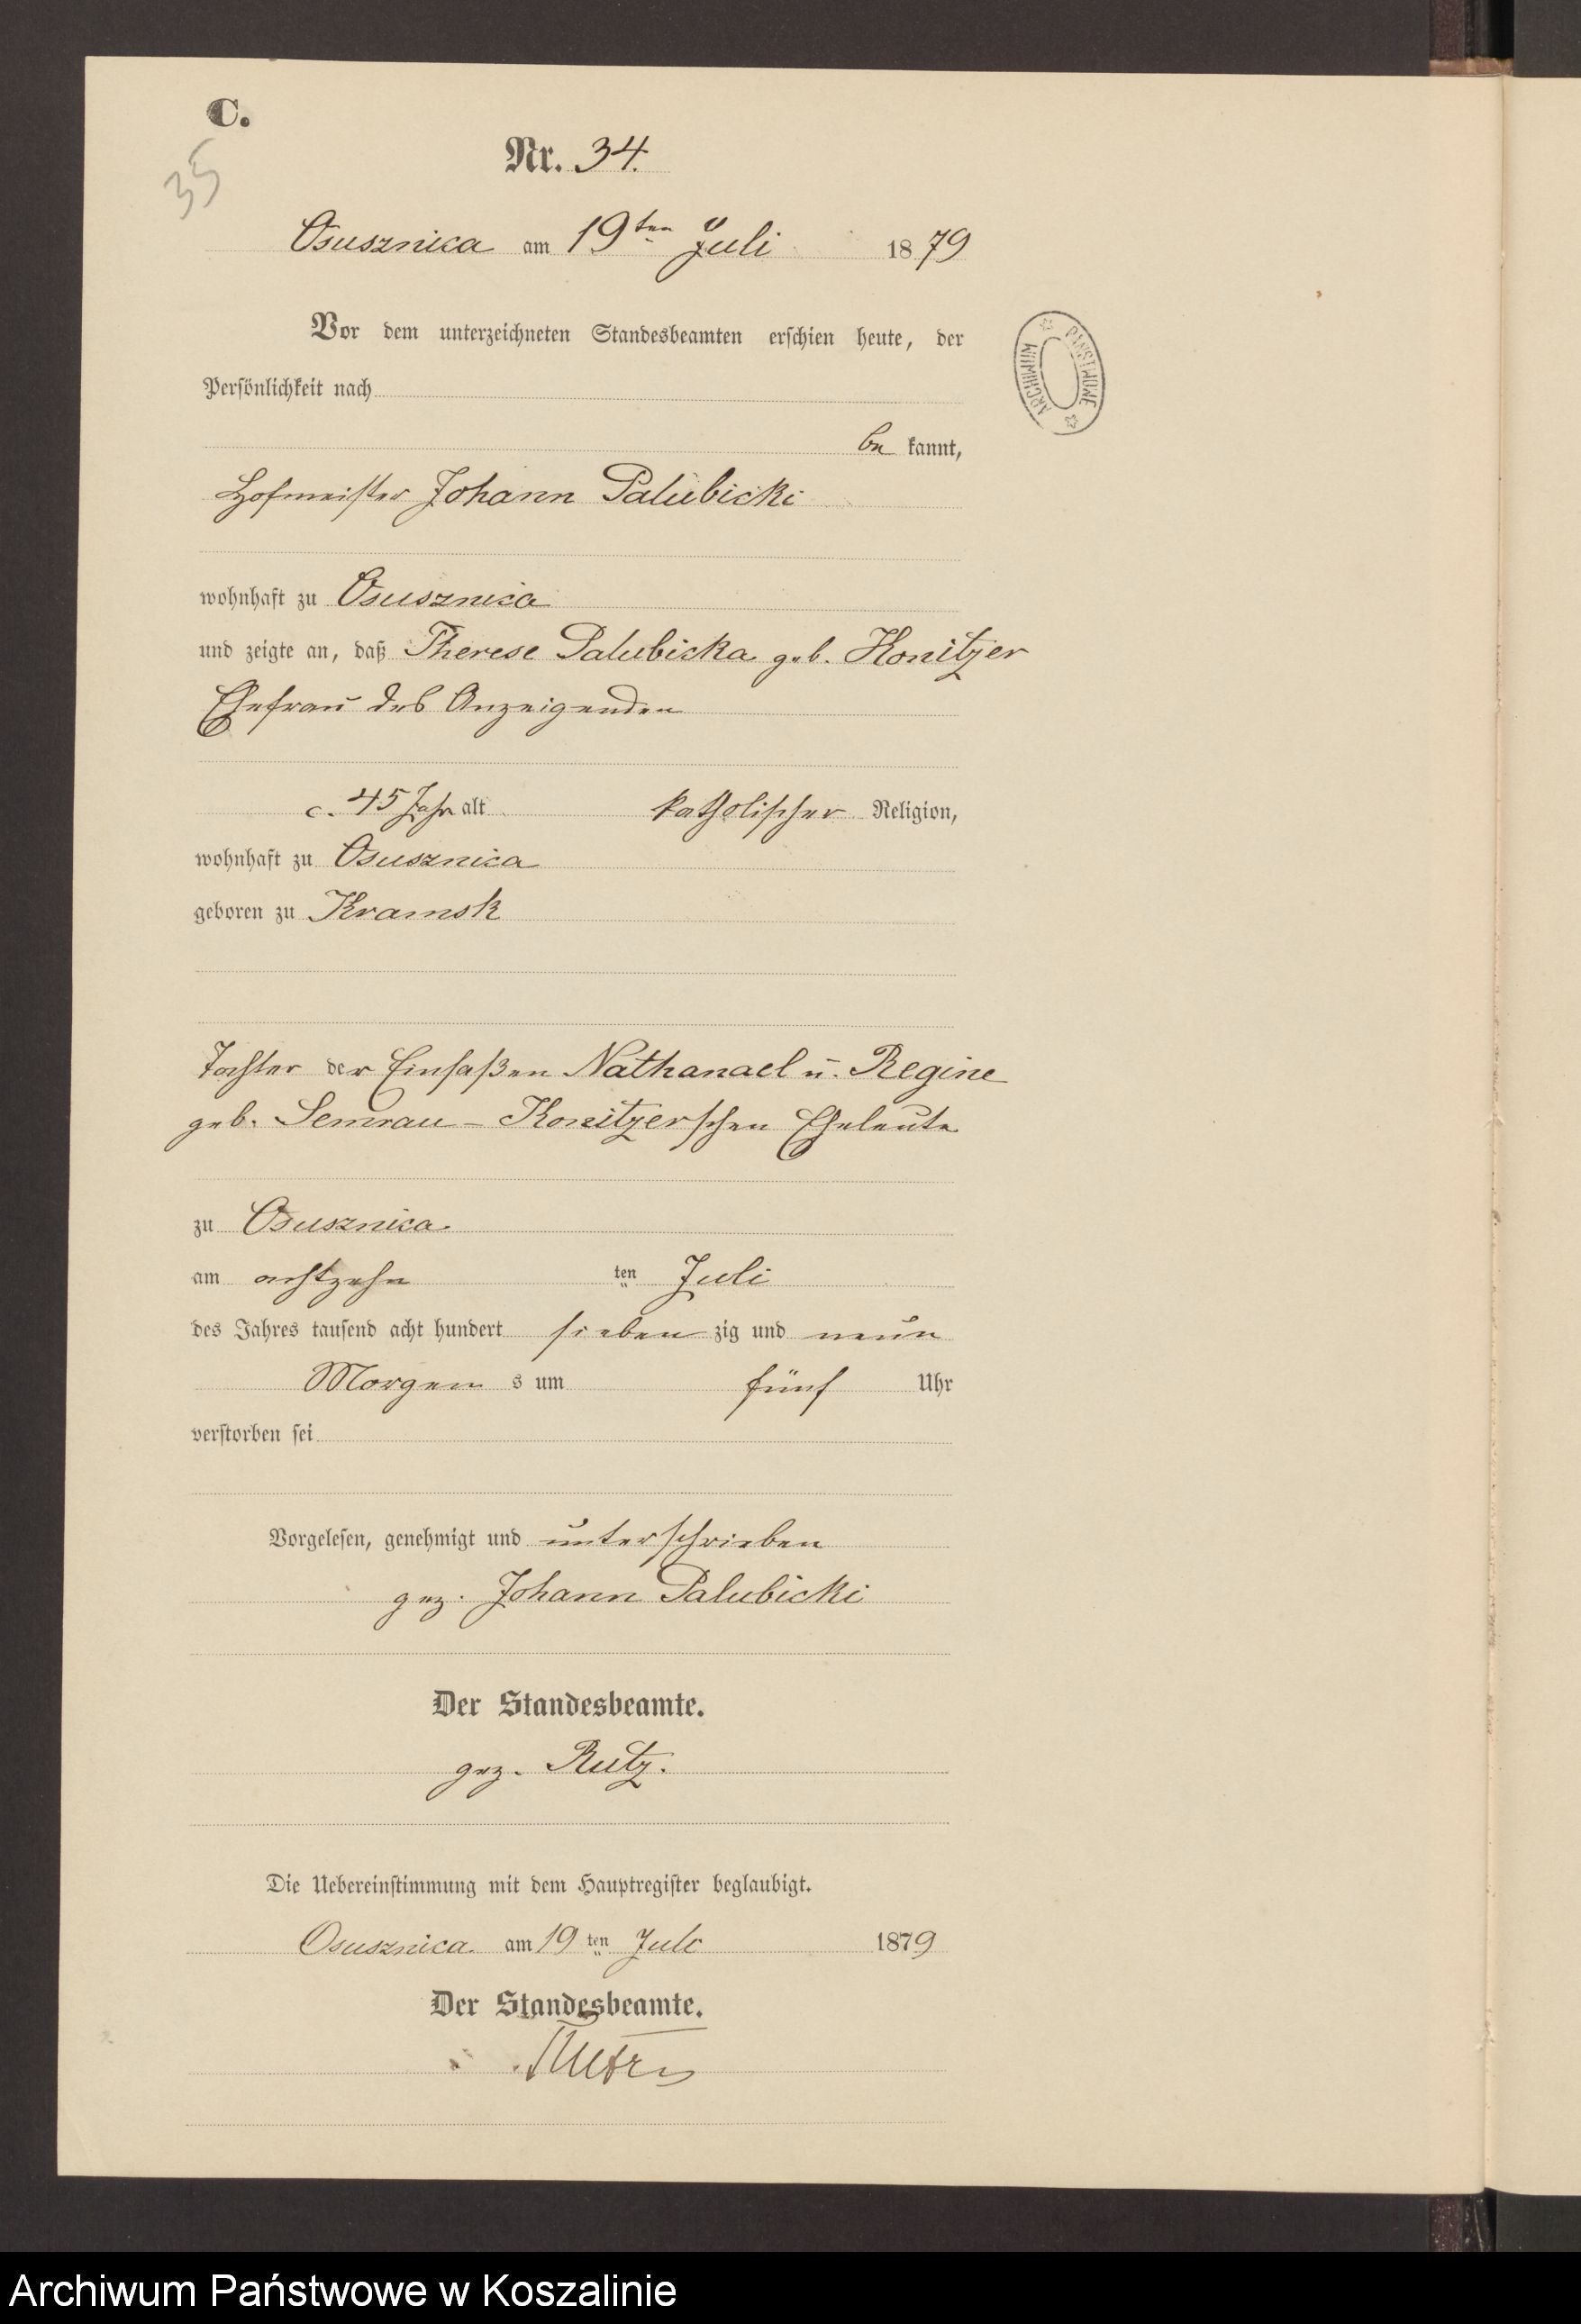 C.
35
Nr. 34.
Osusznica am 19ten Juli 1879
Vor dem unterzeichneten Standesbeamten erschien heute, der
Persönlichkeit nach
be kannt,
Hofmeister Johann Palubicki
ARCHIWUM PAŃSTWOWE
wohnhaft zu Osusznica
und zeigte an, daß Therese Palubicka geb. Konitzer
Ehefrau des Anzeigenden
c. 45 Jahr alt katholischer Religion,
wohnhaft zu Osusznica
geboren zu Kramsk
Tochter der Einsaßen Nathanael u. Regine
geb. Semrau - Konitzerschen Eheleute
zu Osusznica.
am achtzehn ten Juli
des Jahres tausend acht hundert sieben zig und neun
Morgen s um fünf Uhr
verstorben sei
Vorgelesen, genehmigt und unterschrieben
gez. Johann Palubicki
Der Standesbeamte.
gez. Rutz.
Die Uebereinstimmung mit dem Hauptregister beglaubigt.
Osusznica am 19 ten Juli 1879
Der Standesbeamte.
Rutz
Archiwum Państwowe w Koszalinie